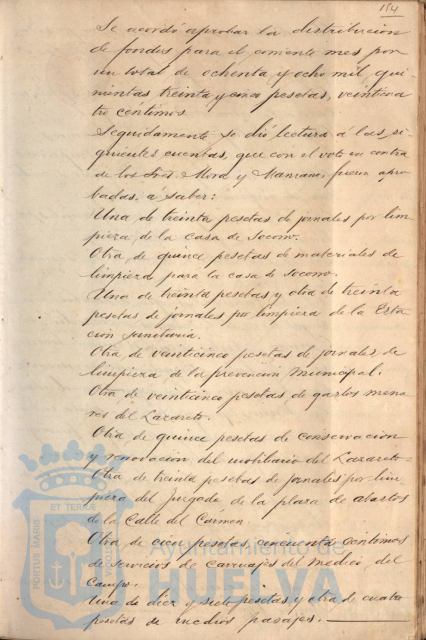 154
Se acordó aprobar la distribucion
de fondos para el corriente mes por
un total de ochenta y ocho mil, qui-
nientas treinta y una pesetas, veinticua
tro céntimos.
Seguidamente se dió lectura á las si-
guientes cuentas, que con el voto en contra
de los Sres. Mora y Manzano, fueron apro
badas, á saber:
Una de treinta pesetas de jornales por lim
pieza de la casa de Socorro.
Otra de quince pesetas de materiales de
limpieza para la casa de Socorro.
Una de treinta pesetas y otra de treinta
pesetas de jornales por limpieza de la Esta
ción sanitaria.
Otra de veinticinco pesetas de jornales de
limpieza de la prevencion Municipal.
Otra de veinticinco pesetas de gastos meno
res del Lazareto.
Otra de quince pesetas de conservacion
y renovacion del mobiliario del Lazareto.
Otra de treinta pesetas de jornales por lim
pieza del juzgado de la plaza de abastos
de la Calle del Cármen.
Otra de cien pesetas, cincuenta céntimos
de servicios de carruajes del medico del
Campo.
Una de diez y siete pesetas y otra de cuatro
pesetas de medios pasajes.
PORTUS MARIS ET TERRÆ CUSTODIA
Ayuntamiento de
HUELVA